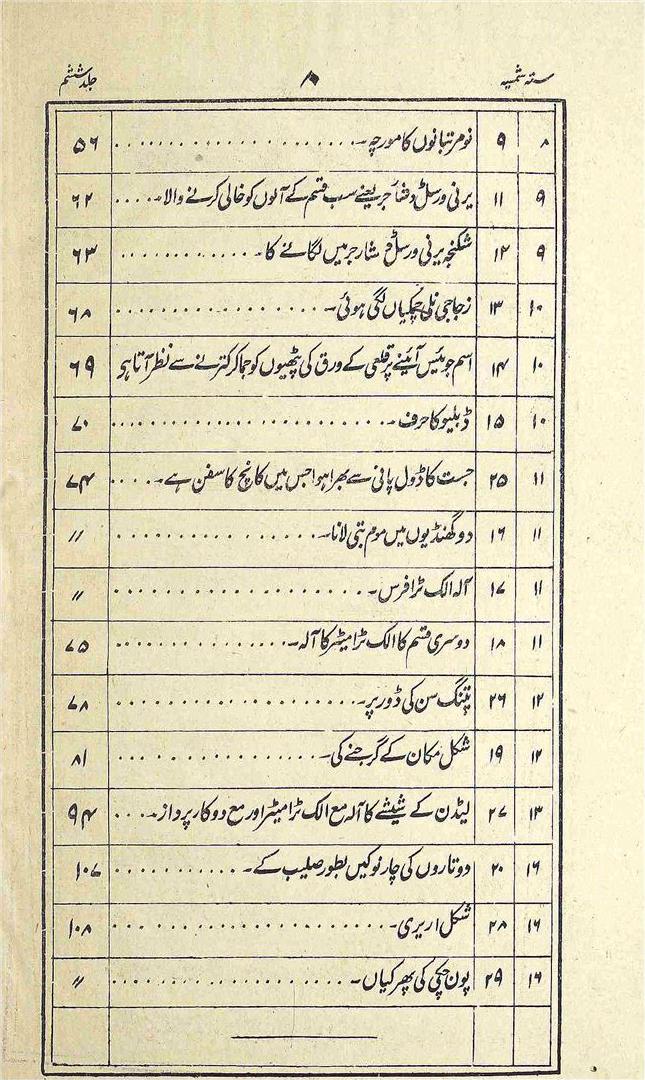 ستہ شمسیہ ۸ جلد ششم
۸ ۹ نو مرتبانوں کا مورچہ۔ ۵۶
۹ ۱۱ یرنی ورسل دفار جر یعنے سب قسم کے آلوں کو خالی کرنے والا۔ ۶۲
۹ ۱۲ شکنجہ یرنی ورسل ڈشارجر میں لگانے کا۔ ۶۳
۱۰ ۱۳ زجاجی نلی چکیاں لگی ہوئی۔ ۶۸
۱۰ ۱۴ اسم جوئیس آئینے پر قلعی کے ورق کی پٹھیوں کو جما کر کترنے سے نظر آتا ہو ۶۹
۱۰ ۱۵ ڈبلیو کا حرف۔ ۷۰
۱۱ ۲۵ جست کا ڈول پانی سے بھرا ہوا جس میں کانچ کا سفن ہے۔ ۷۴
۱۱ ۱۶ دو گھنڈیوں میں موم بتی لانا۔ //
۱۱ ۱۷ آلہ الک ٹرافرس۔ //
۱۱ ۱۸ دوسری قسم کا الک ٹرامیٹر کا آلہ۔ ۷۵
۱۲ ۲۶ پتنگ سن کی ڈور پر۔ ۷۸
۱۲ ۱۹ شکل مکان کے گرجنے کی۔ ۸۱
۱۳ ۲۷ لیڈن کے شیشے کا آلہ مع الک ٹرامیٹر اور مع دو کار پرداز۔ ۹۴
۱۶ ۲۰ دو تاروں کی چار نوکیں بطور صلیب کے۔ ۱۰۷
۱۶ ۲۸ شکل اریری۔ ۱۰۸
۱۶ ۲۹ پون چکی کی پھرکیاں۔ //